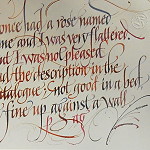 once had a rose named
me and I was very flattered.
but I was not pleased
the description in the
catalogue: not good in a bed
fine up against a wall